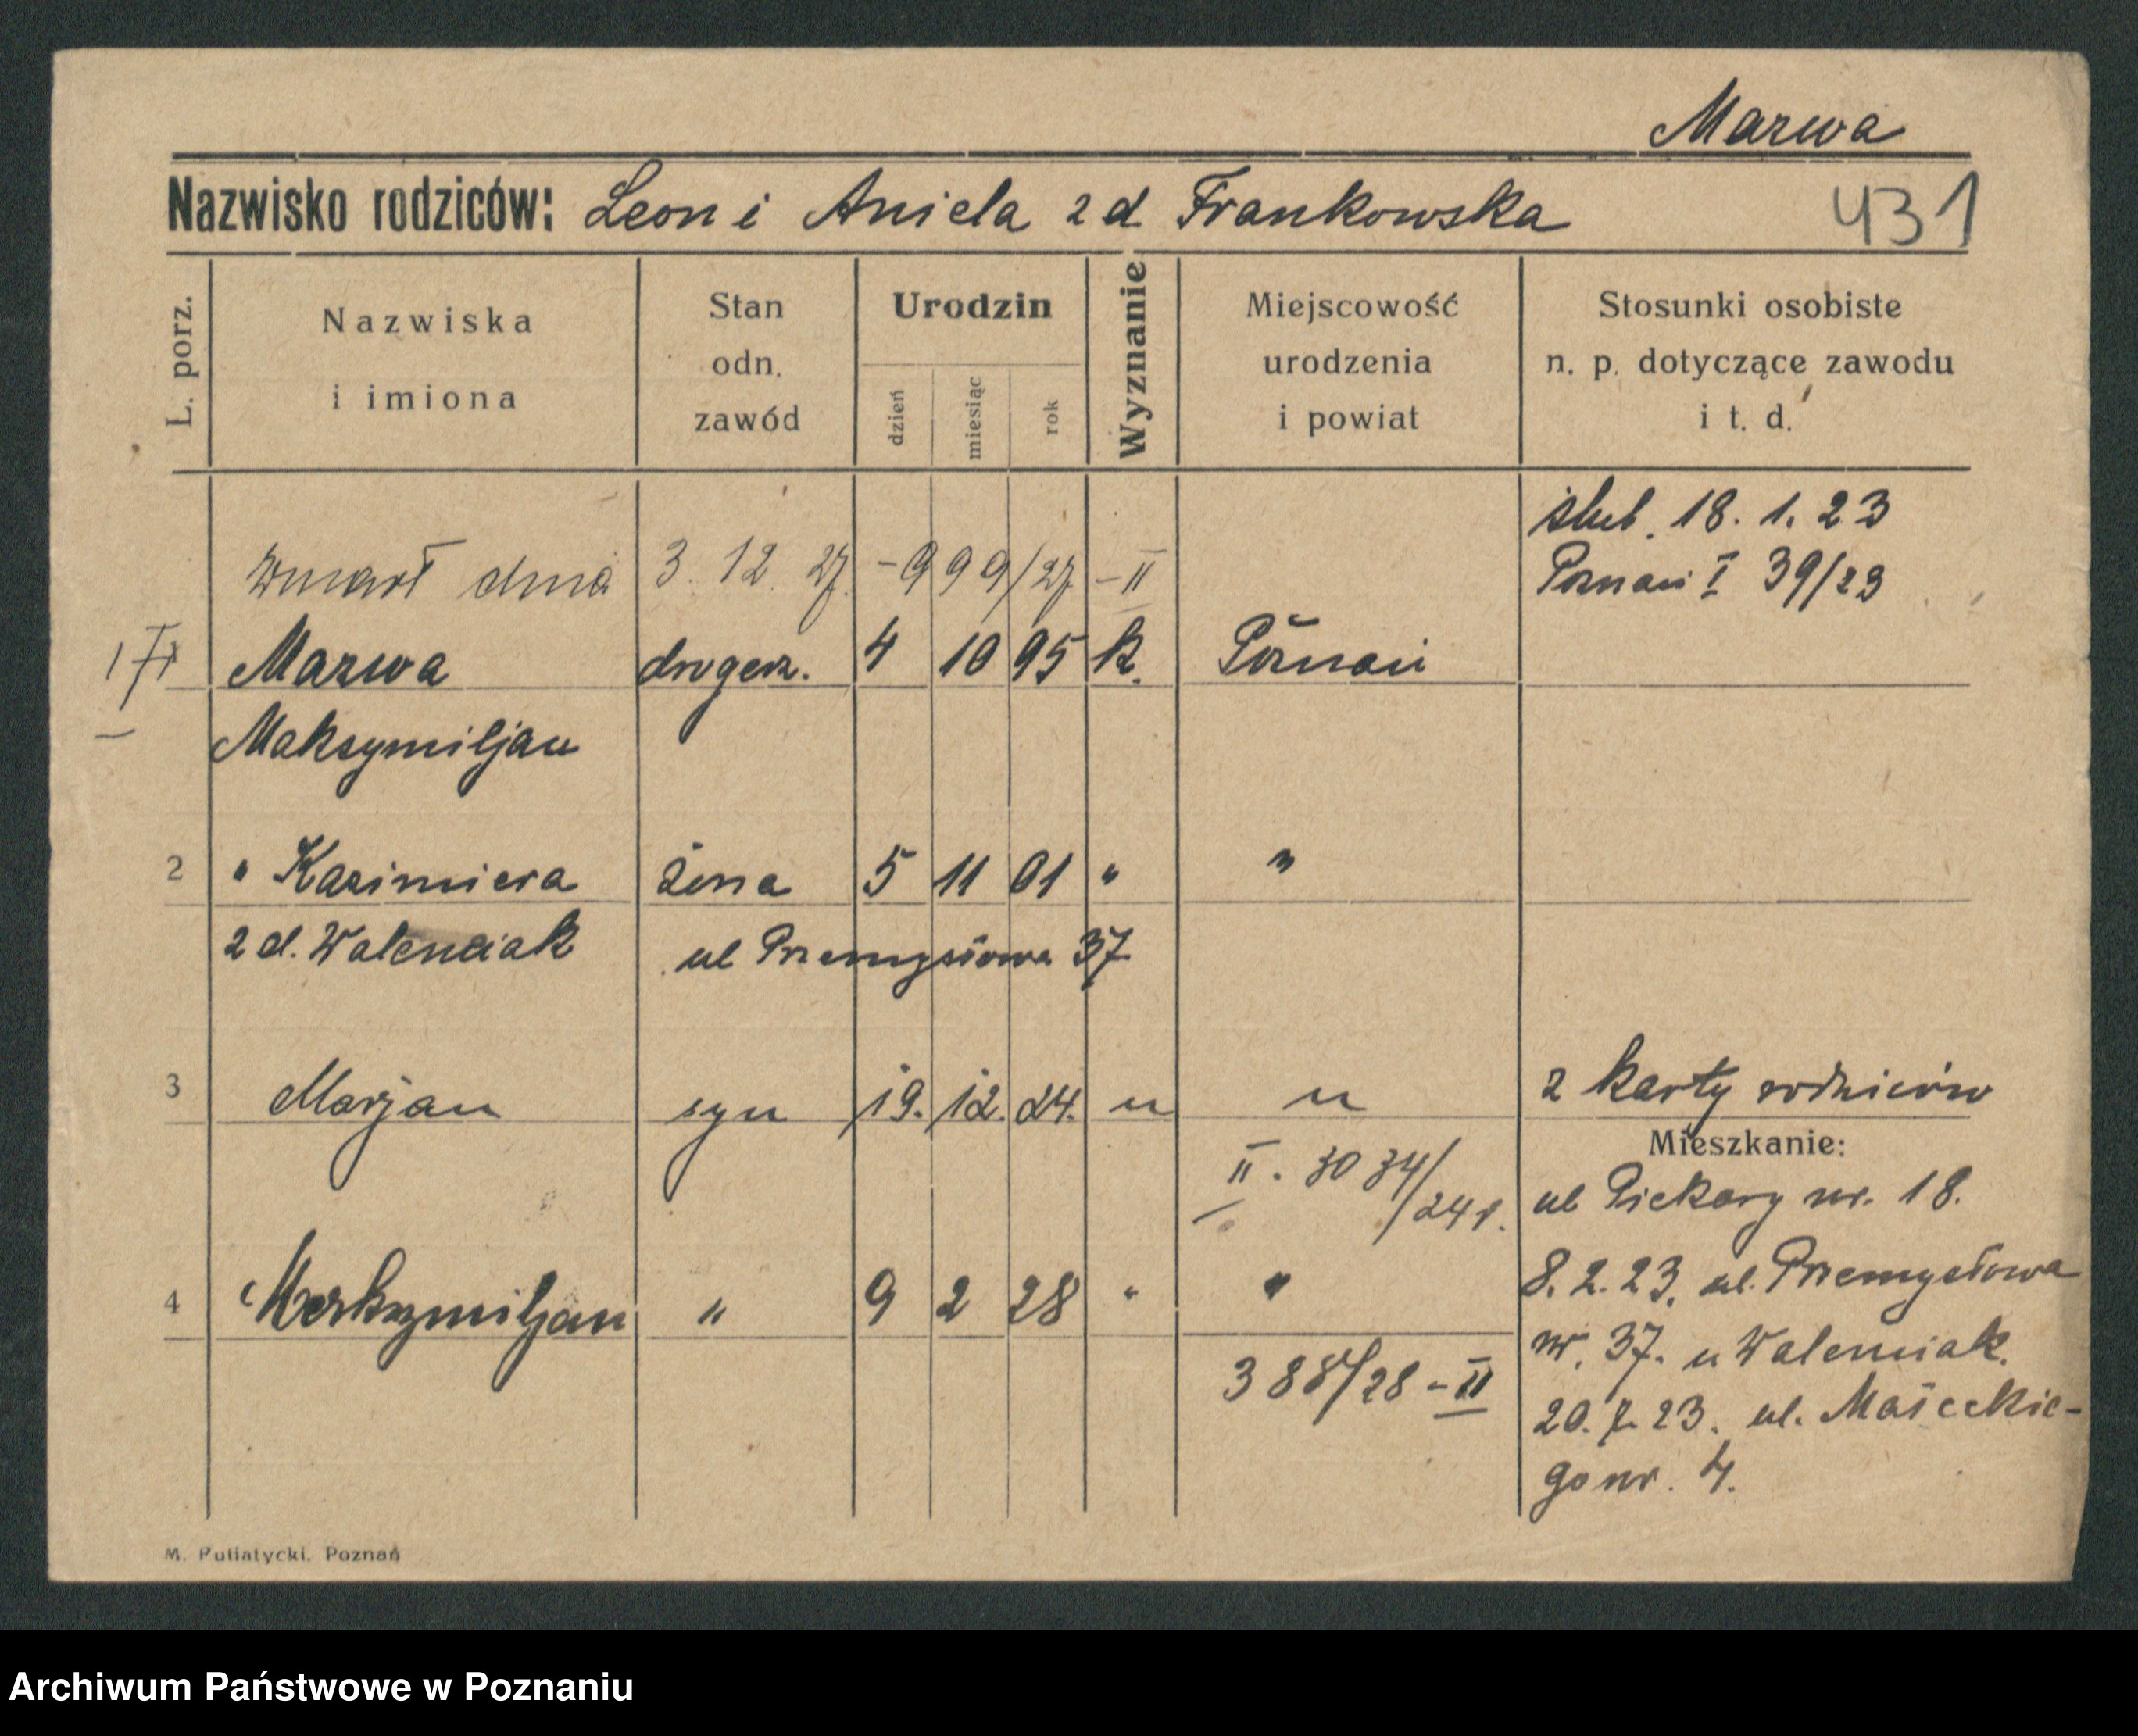 Marwa
Nazwisko rodziców: Leon i Aniela z d Frankowska
431
L. porz.
Nazwiska
i imiona
Stan
odn.
zawód
Urodzin
dzień
miesiąc
rok
Wyznanie
Miejscowość
urodzenia
i powiat
Stosunki osobiste
n. p. dotyczące zawodu
i t. d.
ślub. 18. 1. 23
Poznań I 39/23
Zmarł dnia 3. 12. 27. - 999/27 - II
1 † Marwa drogerz. 4 10 95 k. Poznań
Maksymiljan
2 " Kazimiera żona 5 11 01 " "
z d. Walenciak ul Przemysłowa 37
3 Marjan syn 19. 12. 24. " " z karty rodziców
II. 3034/24 r.
Mieszkanie:
ul Piekary nr. 18.
4 Maksymiljan " 9 2 28 " "
388/28 - II
8. 2. 23. ul. Przemysłowa
nr. 37. u Walenciak.
20. 23. ul. Małeckie-
go nr. 4.
M. Putiatycki, Poznań
Archiwum Państwowe w Poznaniu